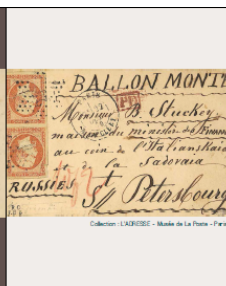 BALLON MONTÉ
PD
Monsieur B. Stuckey
maison du ministre de
au coin de l'Italianskaia
de la Sadovaia
RUSSIES
St Petersbourg
Collection : L'ADRESSE - Musée de La Poste - Paris